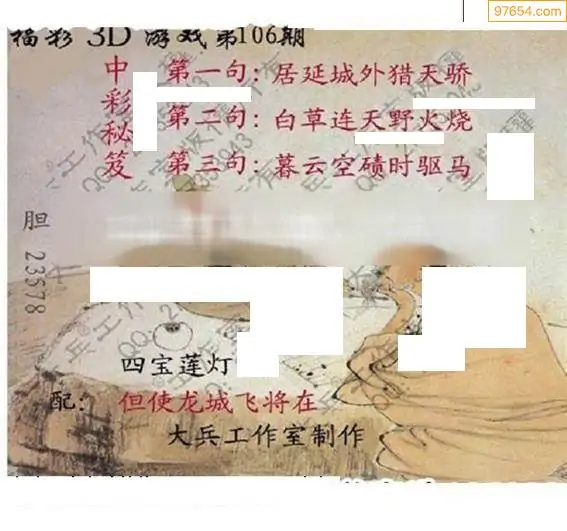 97654.com
福彩 3D 游戏第106期
中彩秘笈
第一句：居延城外猎天骄
第二句：白草连天野火烧
第三句：暮云空碛时驱马
胆 23578
四宝莲灯
配：但使龙城飞将在
大兵工作室制作